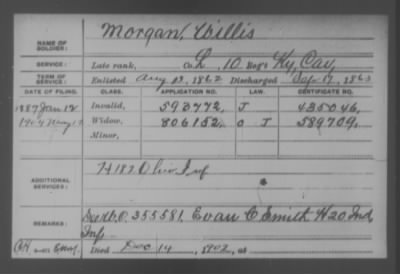 NAME OF SOLDIER: Morgan, Willis
SERVICE: Late rank, Co. L, 10 Reg't Ky. Cav.
TERM OF SERVICE: Enlisted Aug 13, 1862 Discharged Sep 17, 1863
DATE OF FILING. CLASS. APPLICATION NO. LAW. CERTIFICATE NO.
1887 Jan 12 Invalid, 593772, J 435046,
Widow, 806152, J 589709,
Minor,
ADDITIONAL SERVICES: H 187 Ohio Inf
REMARKS: 355581, Evan C. Smith H 20 Ind.
Inf.
Died Dec 14, 1902, at